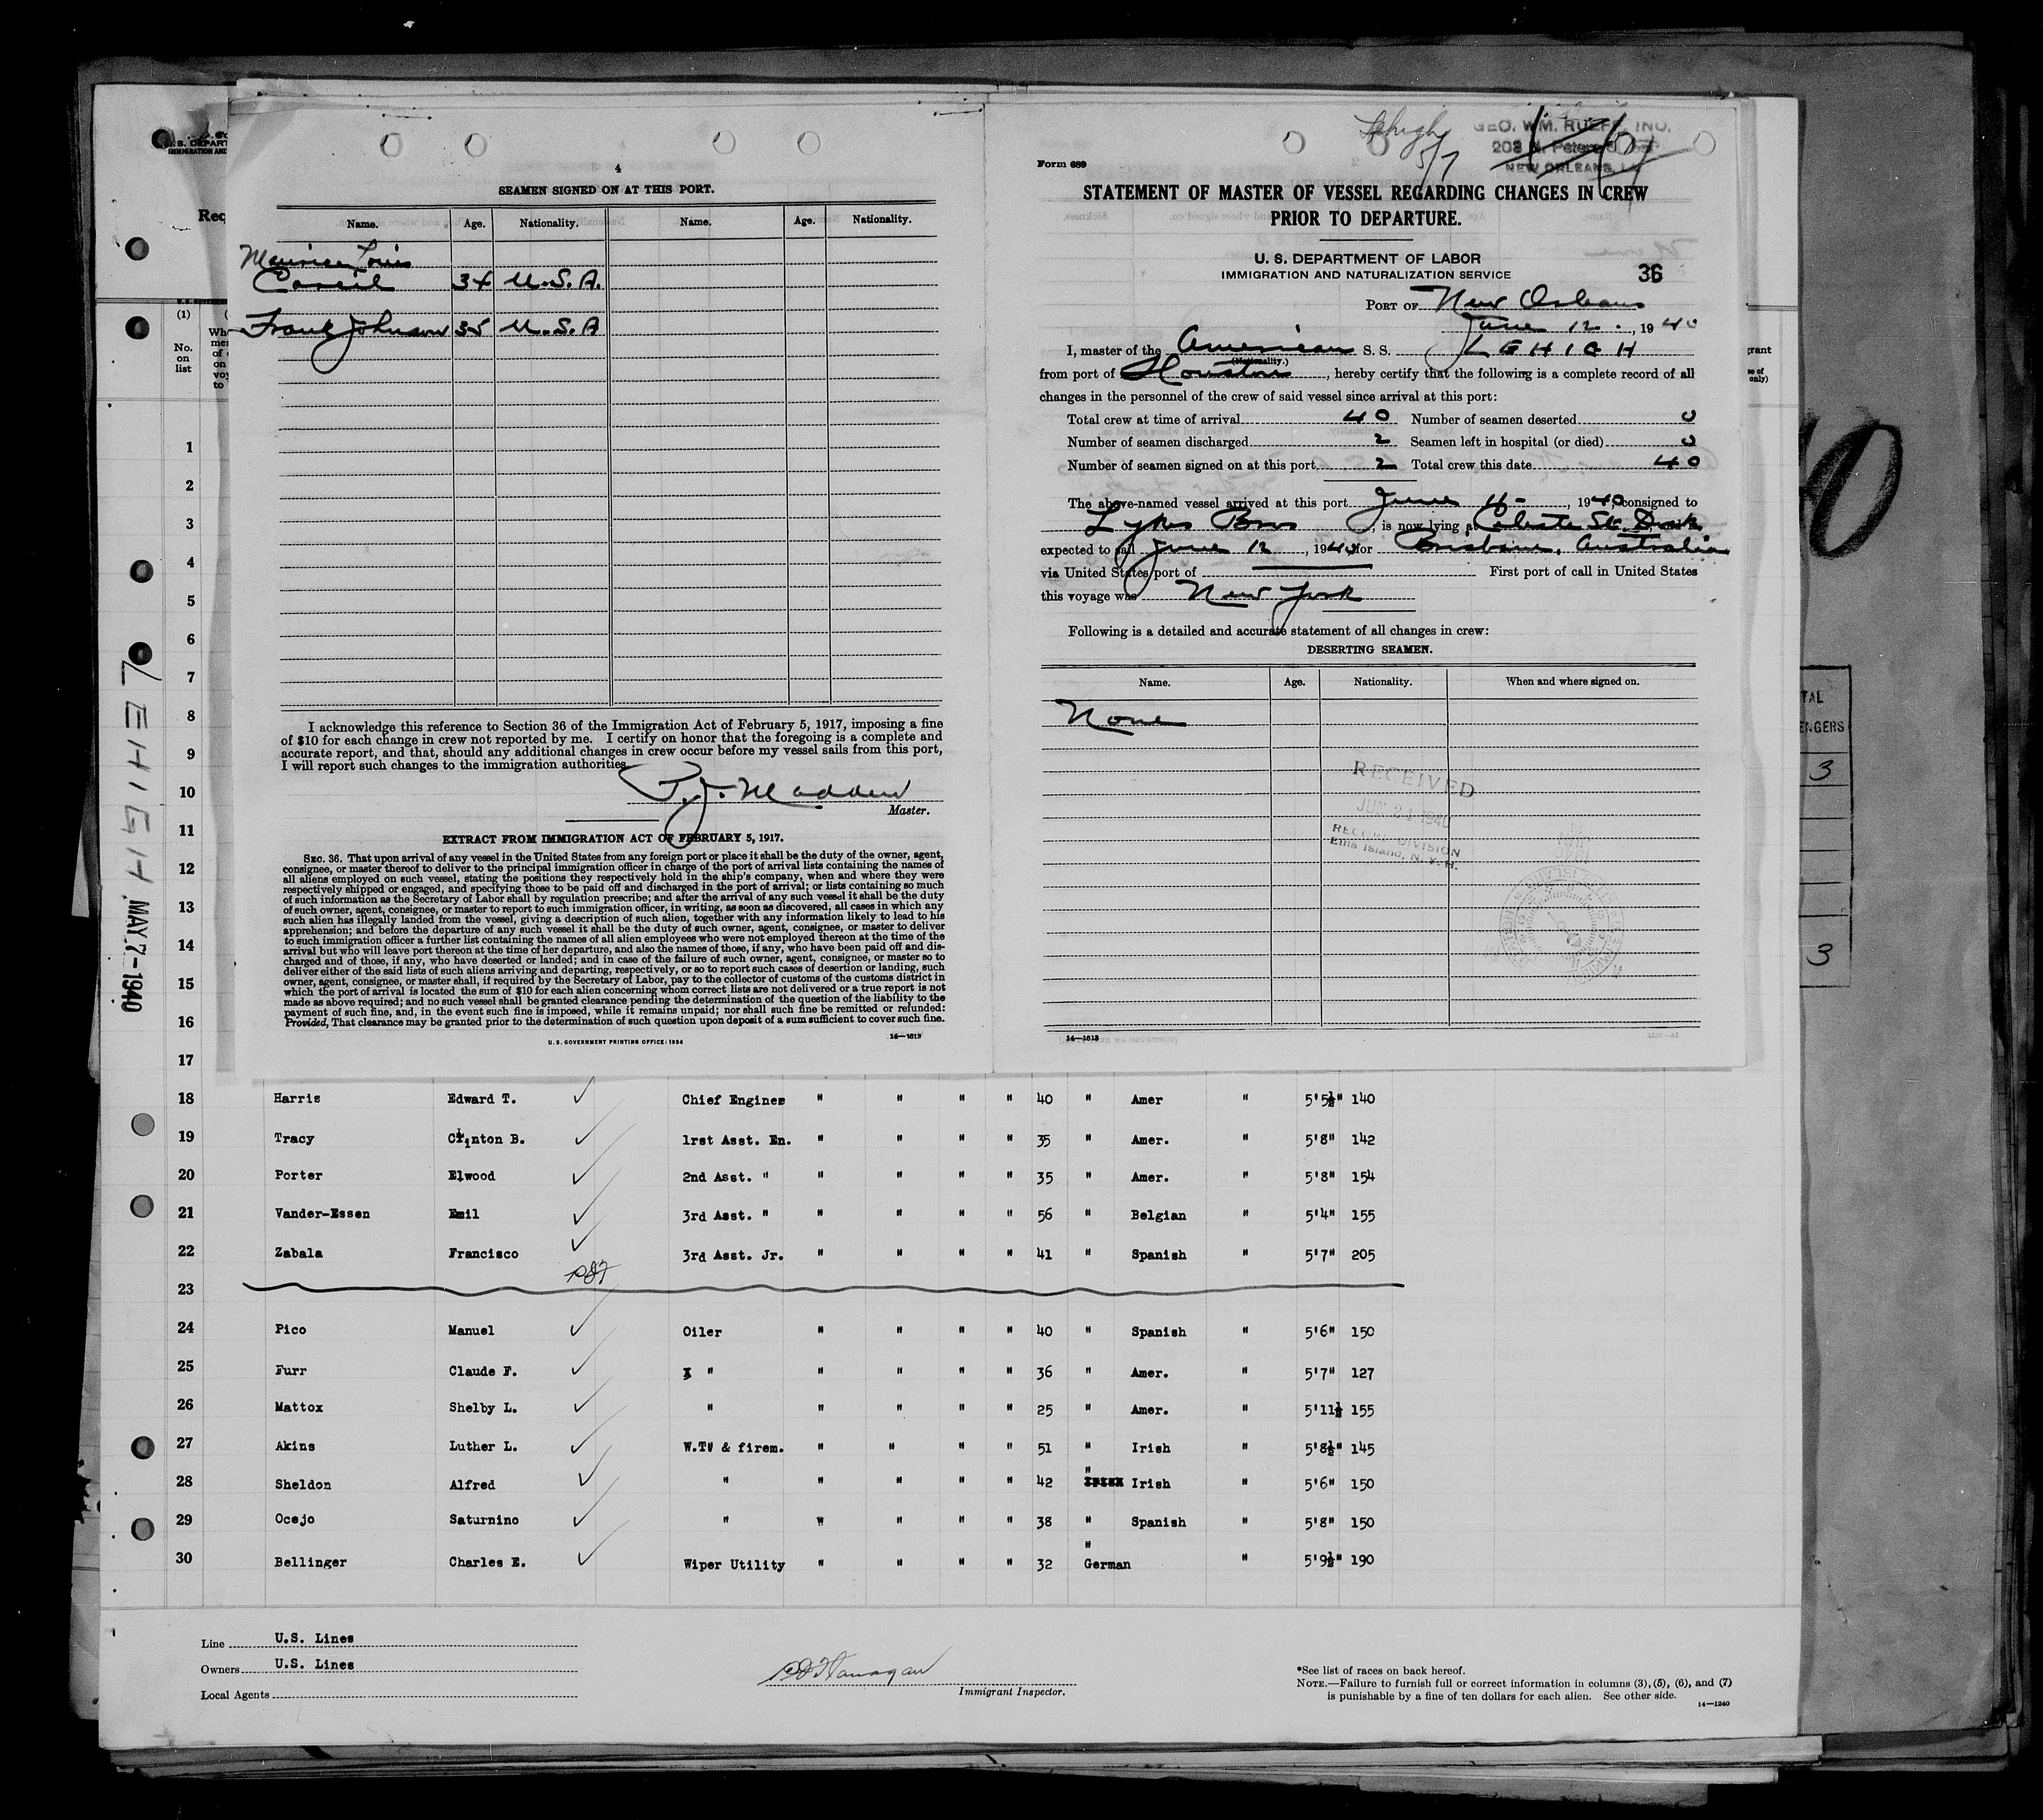 4
SEAMEN SIGNED ON AT THIS PORT.
Name. Age. Nationality. Name. Age. Nationality.
Maurice Louis
34 U.S.A.
Frank Johnson 35 U.S.A
I acknowledge this reference to Section 36 of the Immigration Act of February 5, 1917, imposing a fine
of $10 for each change in crew not reported by me. I certify on honor that the foregoing is a complete and
accurate report, and that, should any additional changes in crew occur before my vessel sails from this port,
I will report such changes to the immigration authorities.
P.J. Madden
Master.
EXTRACT FROM IMMIGRATION ACT OF FEBRUARY 5, 1917.
SEC. 36. That upon arrival of any vessel in the United States from any foreign port or place it shall be the duty of the owner, agent,
consignee, or master thereof to deliver to the principal immigration officer in charge of the port of arrival lists containing the names of
all aliens employed on such vessel, stating the positions they respectively hold in the ship's company, when and where they were
respectively shipped or engaged, and specifying those to be paid off and discharged in the port of arrival; or lists containing so much
of such information as the Secretary of Labor shall by regulation prescribe; and after the arrival of any such vessel it shall be the duty
of such owner, agent, consignee, or master to report to such immigration officer, in writing, as soon as discovered, all cases in which any
such alien has illegally landed from the vessel, giving a description of such alien, together with any information likely to lead to his
apprehension; and before the departure of any such vessel it shall be the duty of such owner, agent, consignee, or master to deliver
to such immigration officer a further list containing the names of all alien employees who were not employed thereon at the time of the
arrival but who will leave port thereon at the time of her departure, and also the names of those, if any, who have been paid off and dis-
charged and of those, if any, who have deserted or landed; and in case of the failure of such owner, agent, consignee, or master so to
deliver either of the said lists of such aliens arriving and departing, respectively, or so to report such cases of desertion or landing, such
owner, agent, consignee, or master shall, if required by the Secretary of Labor, pay to the collector of customs of the customs district in
which the port of arrival is located the sum of $10 for each alien concerning whom correct lists are not delivered or a true report is not
made as above required; and no such vessel shall be granted clearance pending the determination of the question of the liability to the
payment of such fine, and, in the event such fine is imposed, while it remains unpaid; nor shall such fine be remitted or refunded:
Provided, That clearance may be granted prior to the determination of such question upon deposit of a sum sufficient to cover such fine.
U. S. GOVERNMENT PRINTING OFFICE: 1934 14—1613
Lehigh
5/7
GEO. WM. RUEFF, INC.
208 N. Peters St.
NEW ORLEANS, LA
Form 689
STATEMENT OF MASTER OF VESSEL REGARDING CHANGES IN CREW
PRIOR TO DEPARTURE.
U. S. DEPARTMENT OF LABOR
IMMIGRATION AND NATURALIZATION SERVICE
36
PORT OF New Orleans
June 12, 1940
I, master of the American S. S. LEHIGH
(Nationality.)
from port of Houston, hereby certify that the following is a complete record of all
changes in the personnel of the crew of said vessel since arrival at this port:
Total crew at time of arrival 40 Number of seamen deserted 0
Number of seamen discharged 2 Seamen left in hospital (or died) 0
Number of seamen signed on at this port 2 Total crew this date 40
The above-named vessel arrived at this port June 11-, 1940, consigned to
Lykes Bros, is now lying at Celeste St. Dock
expected to sail June 12, 1940 for Brisbane, Australia
via United States port of First port of call in United States
this voyage was New York
Following is a detailed and accurate statement of all changes in crew:
DESERTING SEAMEN.
Name. Age. Nationality. When and where signed on.
None
RECEIVED
JUN 24 1940
RECORD DIVISION
Ellis Island, N. Y. H.
14—1613
(1)
No.
on
list
LEHIGH MAY 7-1940
1
2
3
4
5
6
7
8
9
10
11
12
13
14
15
16
17
18 Harris Edward T. Chief Enginee " " " " 40 " Amer " 5'5½" 140
19 Tracy Clinton B. 1rst Asst. En. " " " " 35 " Amer. " 5'8" 142
20 Porter Elwood 2nd Asst. " " " " " 35 " Amer. " 5'8" 154
21 Vander-Essen Emil 3rd Asst. " " " " " 56 " Belgian " 5'4" 155
22 Zabala Francisco 3rd Asst. Jr. " " " " 41 " Spanish " 5'7" 205
23
24 Pico Manuel Oiler " " " " 40 " Spanish " 5'6" 150
25 Furr Claude F. " " " " " 36 " Amer. " 5'7" 127
26 Mattox Shelby L. " " " " " 25 " Amer. " 5'11½ 155
27 Akins Luther L. W.T. & firem. " " " " 51 " Irish " 5'8½" 145
28 Sheldon Alfred " " " " " 42 " Irish " 5'6" 150
29 Ocejo Saturnino " " " " " 38 " Spanish " 5'8" 150
30 Bellinger Charles E. Wiper Utility " " " " 32 " German " 5'9½" 190
TAL
ENGERS
3
3
Line U.S. Lines
Owners U.S. Lines
Local Agents
Immigrant Inspector.
*See list of races on back hereof.
NOTE.—Failure to furnish full or correct information in columns (3), (5), (6), and (7)
is punishable by a fine of ten dollars for each alien. See other side.
14—1240